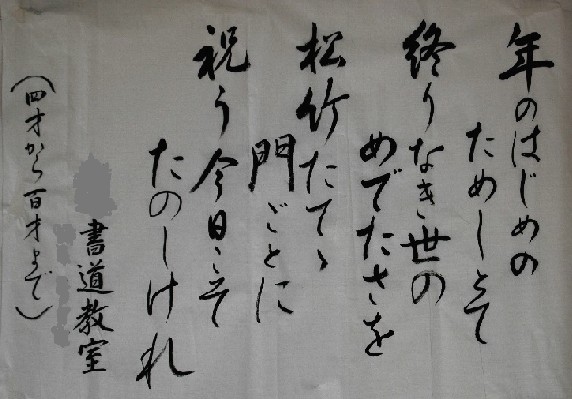 年のはじめの
ためしとて
終りなき世の
めでたさを
松竹たてゝ
門ごとに
祝う今日こそ
たのしけれ
書道教室
(四才から百才まで)